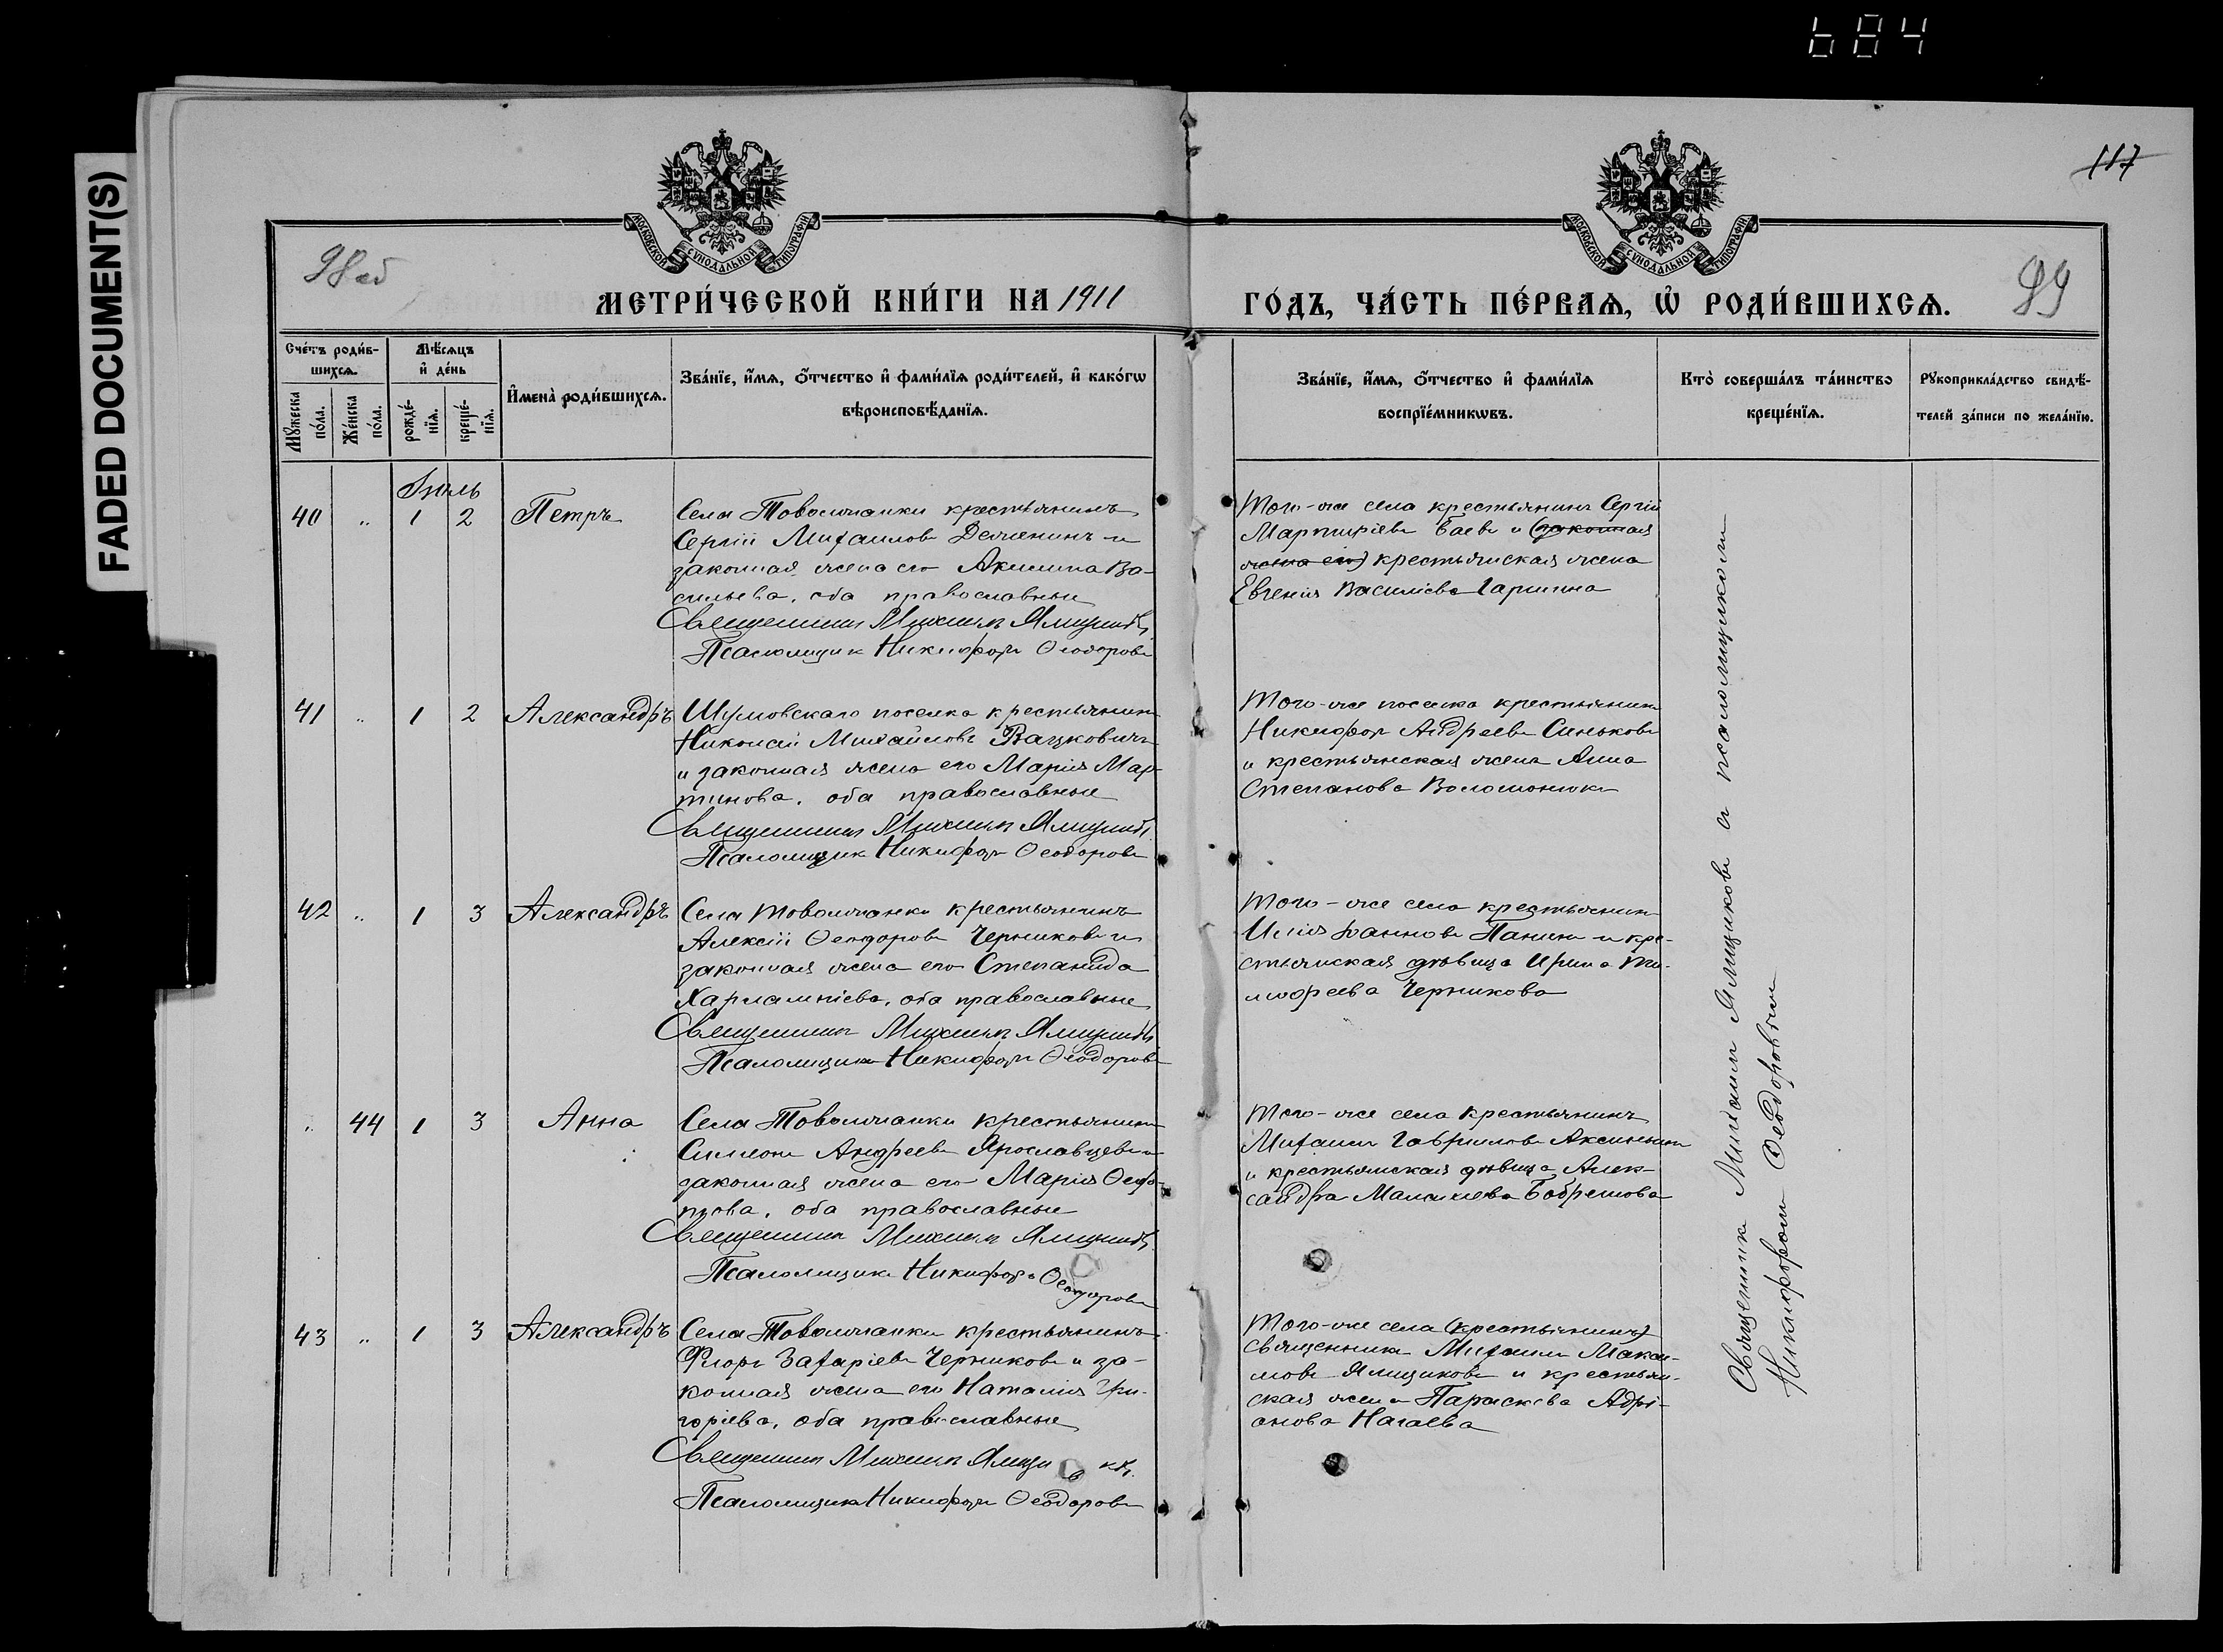 684
FADED DOCUMENT(S)
117
98 об
МОСКОВСКОЙ СѴНОДАЛЬНОЙ ТИПОГРАФІИ
МОСКОВСКОЙ СѴНОДАЛЬНОЙ ТИПОГРАФІИ
МЕТРИ́ЧЕСКОЙ КНИ́ГИ НА 1911
ГО́ДЪ, ЧА́СТЬ ПЕ́РВАѦ, Ѡ҆ РОДИ́ВШИХСѦ.
99
Сче́тъ роди́в-
шихсѧ.
Мꙋ́жеска по́ла.
Же́нска по́ла.
Мѣ́сѧцъ
и҆ де́нь
рожде́-
нїѧ.
креще́-
нїѧ.
И҆мена̀ роди́вшихсѧ.
Зва́нїе, и҆́мѧ, ѻ҆́тчество и҆ фами́лїѧ роди́телей, и҆ како́гѡ
вѣроисповѣ́данїѧ.
Зва́нїе, и҆́мѧ, ѻ҆́тчество и҆ фами́лїѧ
воспрїе́мникѡвъ.
Кто̀ соверша́лъ та́инство
креще́нїѧ.
Рꙋкоприкла́дство свидѣ́-
телей за́писи по жела́нїю.
Іюль
40 " 1 2 Петръ
Села Товолжанки крестьянинъ
Сергій Михаиловъ и
законная жена его Акилина Ва-
сильева, оба православные
Священникъ Михаилъ Ямщиковъ
Псаломщикъ Никифоръ Ѳеодоровъ
Того-же села крестьянинъ Сергій
Мартиріевъ Баевъ и (законная
жена его) крестьянская жена
Евгенія Василіева Гаршина
41 " 1 2 Александръ
Шумовскаго поселка крестьянинъ
Николай Михайловъ Вацковичъ
и законная жена его Марія Мар-
тинова, оба православные
Священникъ Михаилъ Ямщиковъ
Псаломщикъ Никифоръ Ѳеодоровъ
Того-же поселка крестьянинъ
Никифоръ Андреевъ Синьковъ
и крестьянская жена Анна
Степанова
42 " 1 3 Александръ
Села Товолжанки крестьянинъ
Алексій Ѳеодоровъ Черниковъ и
законная жена его Степанида
Харлампіева, оба православные
Священникъ Михаилъ Ямщиковъ
Псаломщикъ Никифоръ Ѳеодоровъ
Того-же села крестьянинъ
Илія Іоанновъ Панинъ и кре-
стьянская дѣвица Ирина Ти-
моѳеева Черникова
" 44 1 3 Анна
Села Товолжанки крестьянинъ
Симеонъ Андреевъ Ярославцевъ и
законная жена его Марія
оба православные
Священникъ Михаилъ Ямщиковъ
Псаломщикъ Никифоръ Ѳеодоровъ
Того-же села крестьянинъ
Михаилъ Гавриловъ Аксининъ
и крестьянская дѣвица Алек-
сандра Бобрешова
43 " 1 3 Александръ
Села Товолжанки крестьянинъ
Флоръ Захаріевъ Черниковъ и за-
конная жена его Наталія Гри-
горіева, оба православные
Священникъ Михаилъ Ямщиковъ
Псаломщикъ Никифоръ Ѳеодоровъ
Того-же села (крестьянинъ)
священникъ Михаилъ Макси-
мовъ Ямщиковъ и крестьян-
ская жена Параскева Адрі-
анова Нагаева
Священникъ Михаилъ Ямщиковъ съ псаломщикомъ
Никифоромъ Ѳеодоровымъ